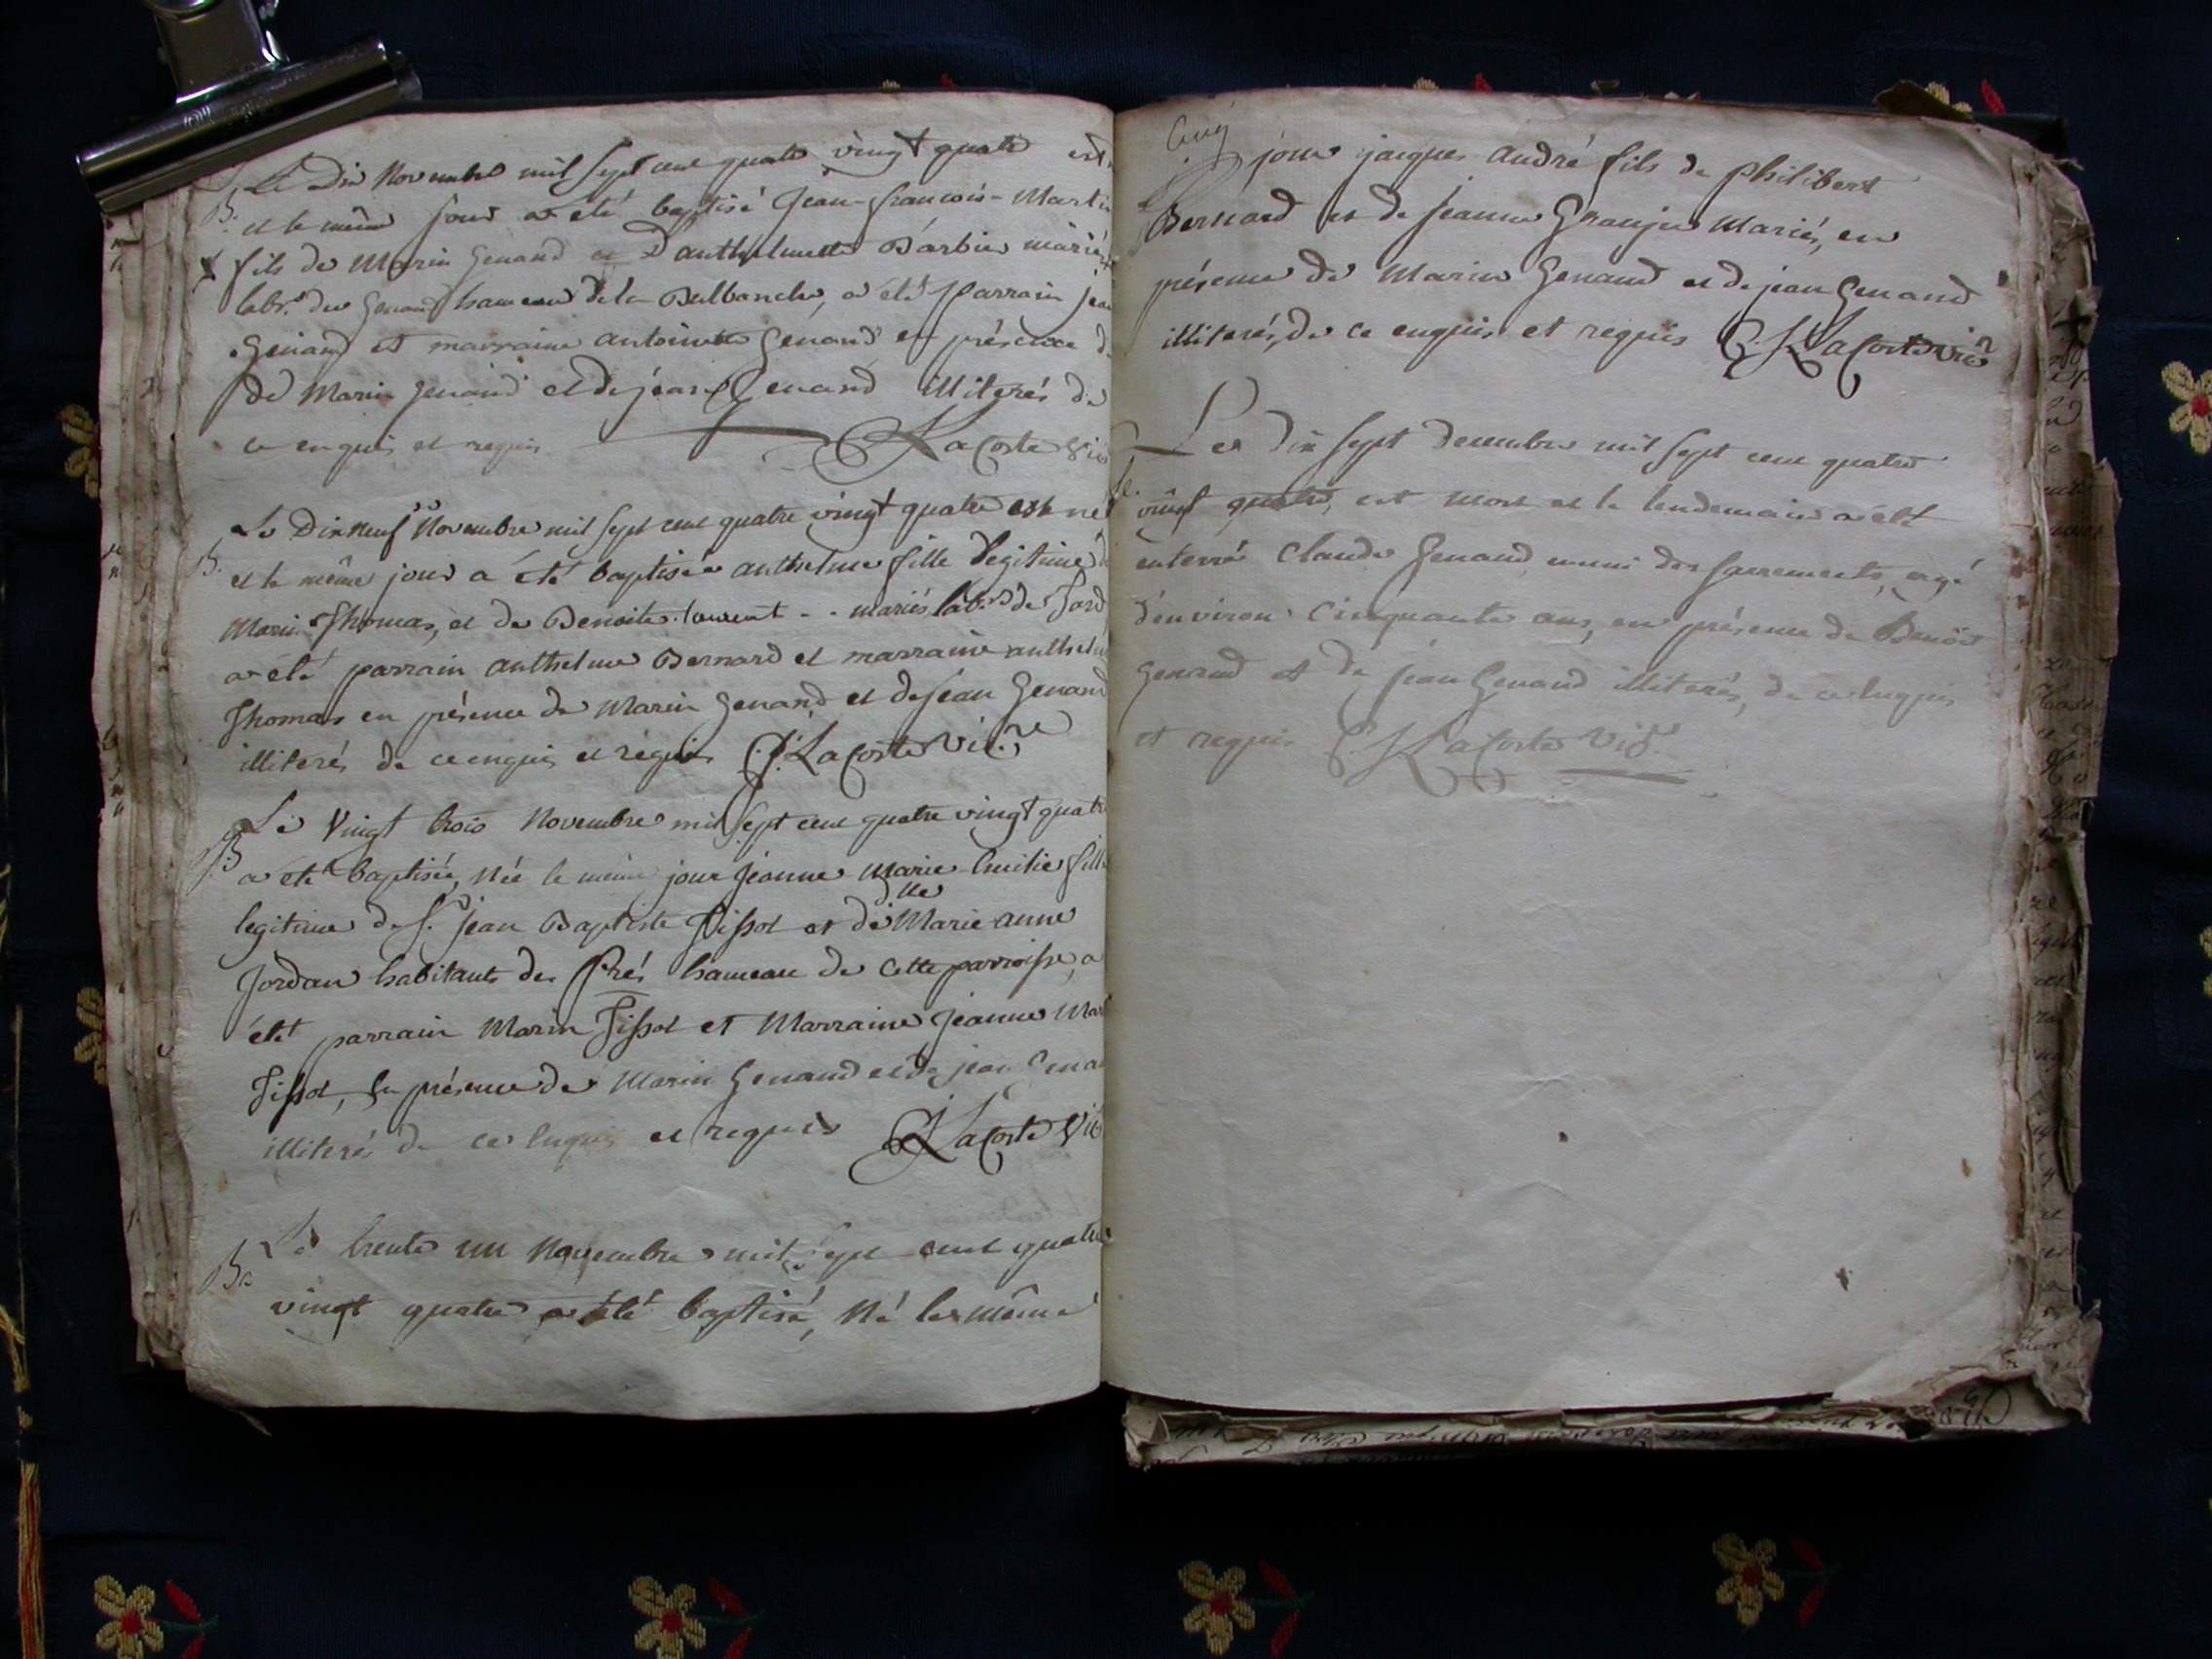 Le Dix Novembre mil sept cent quatre vingt quatre est
B. et le même jour a été baptisé Jean-françois-Martin
fils de Marin Genand et D'anthelmette Barbier mariés
labrs. du Genand hameau de la Balbanche, a été parrain jean
Genand et marraine antoinette Genand en présence de
de Marin Genand et de jean Genand illiterés de
ce enquis et requis LaCoste Vic
Le Dixneuf Novembre mil sept cent quatre vingt quatre est né
B. et le même jour a été baptisée anthelme fille légitime de
Marin Thomas, et de Benoite laurent - - mariés, labrs de
a été parrain anthelme Bernard et marraine anthelme
Thomas en présence de Marin Genand et de jean Genand
illiterés de ce enquis et requis LaCoste Vic.re
Le Vingt trois Novembre mil sept cent quatre vingt quatre
B a été baptisée, Née le même jour Jeanne Marie Emilie fille
legitime de Sr. jean Baptiste Tissot et de Dlle Marie-anne
Jordan habitants des Prés hameau de cette parroisse, a
été parrain Marin Tissot et Marraine Jeanne Mar
Tissot, En présence de Marin Genand et de jean Genand
illiterés de ce Enquis et requis LaCoste Vic
B Le trente un Novembre mil sept cent quatre
vingt quatre a été baptisé, Né le même
jour jacques andré fils de philibert
Bernard et de jeanne Granjer Mariés, en
présence de Marin Genand et de jean Genand
illiterés, de ce enquis et requis LaCoste Vic
Le dix sept decembre mil sept cent quatre
vingt quatre, est mort et le lendemain a été
enterré Claude Genand muni des sacrements, agé
d'environ Cinquante ans, en présence de Benoit
Genand et de jean Genand illiterés, de ce Enquis
et requis LaCoste Vic.